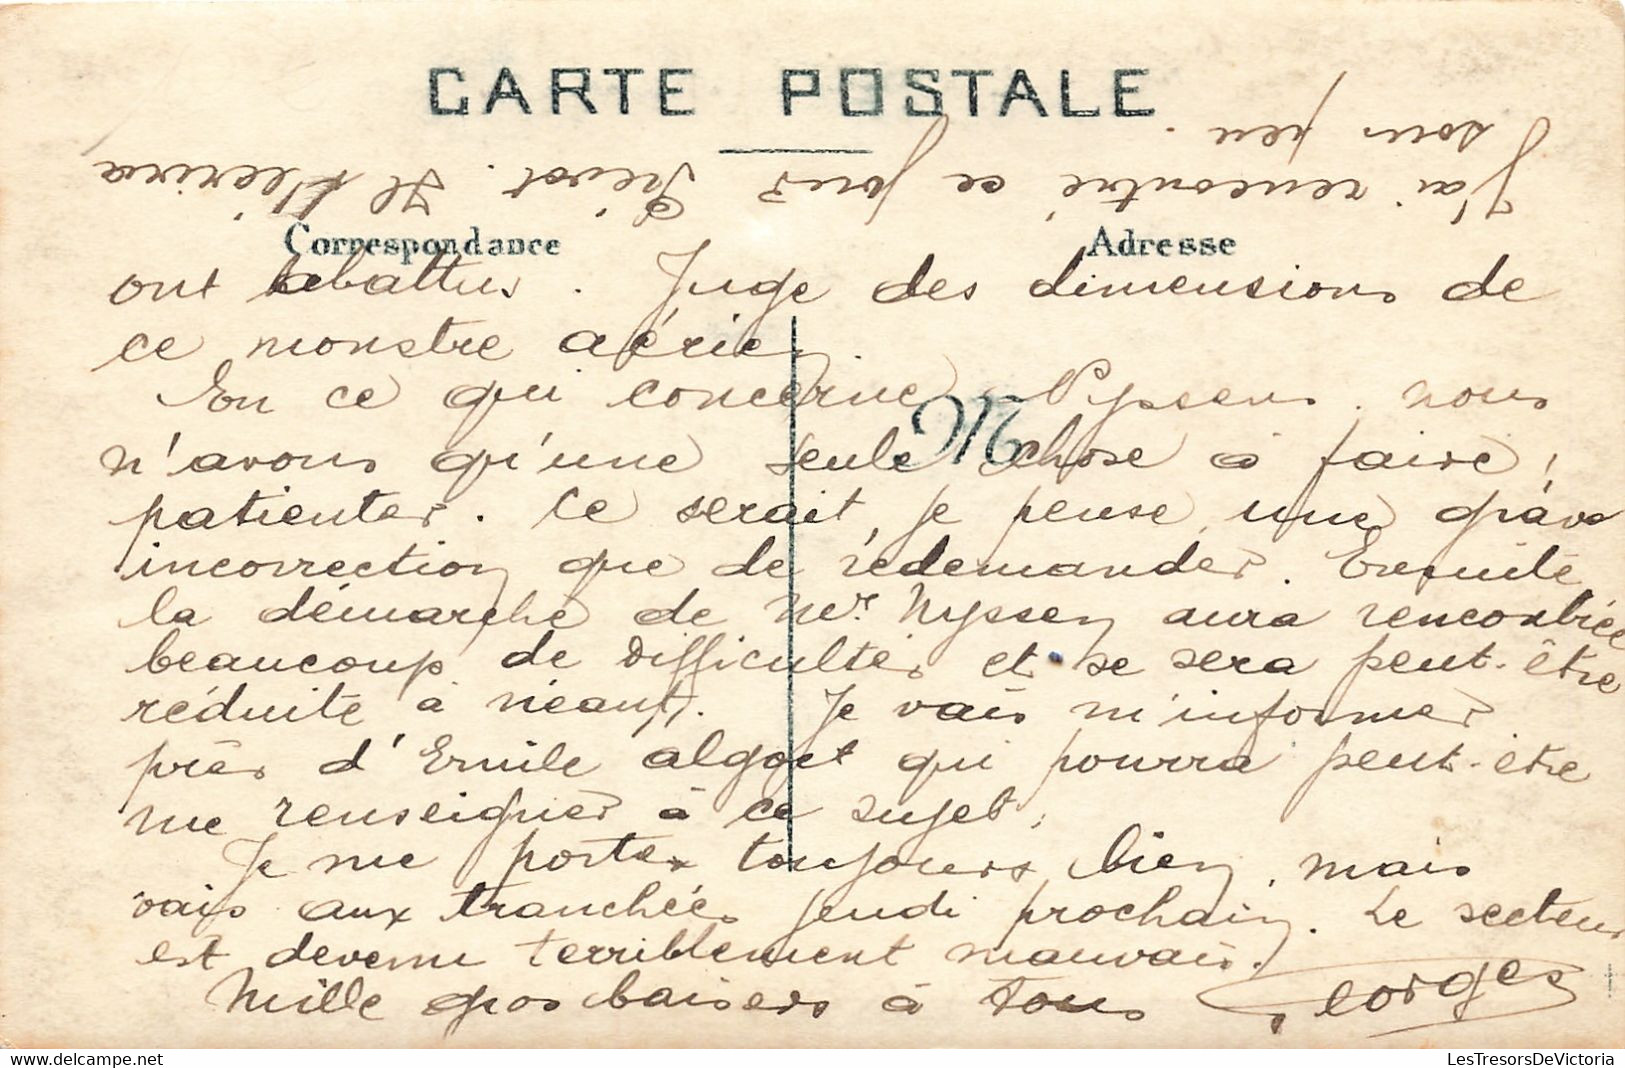 CARTE POSTALE
J'ai rencontré ce jour Prévot. Il t'écrira
sous peu.
Correspondance
Adresse
ont abattus. Juge des dimensions de
ce monstre aérien.
En ce qui concerne Nyssens, nous
M
n'avons qu'une seule chose à faire,
patienter. Ce serait, je pense, une grave
incorrection que de redemander. Ensuite
la démarche de Mr. Nyssen aura rencontrée
beaucoup de difficultés et se sera peut-être
réduite à néant. Je vais m'informer
près d'Emile Algoet qui pourra peut-être
me renseigner à ce sujet.
Je me porte toujours bien, mais
vais aux tranchées jeudi prochain. Le secteur
est devenu terriblement mauvais.
Mille gros baisers à tous Georges
LesTresorsDeVictoria